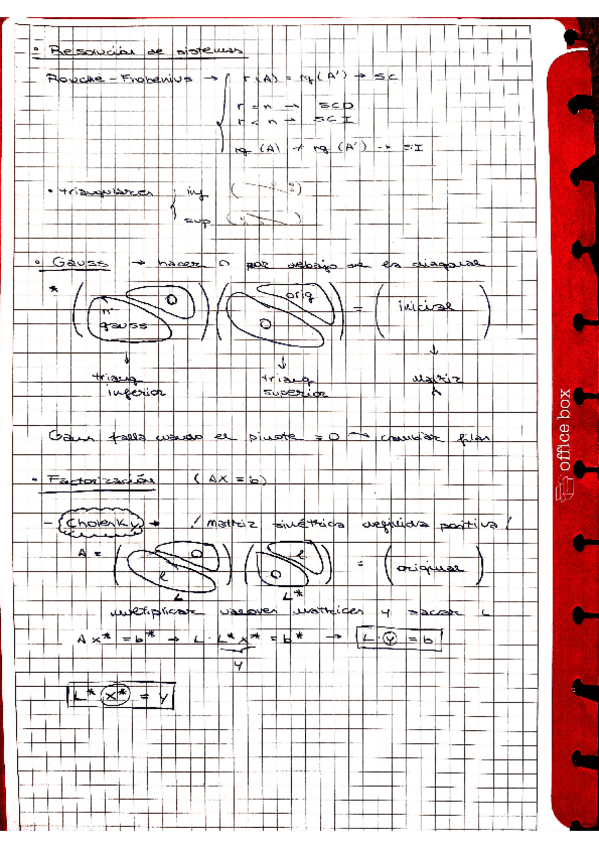 • Resolución de sistemas
Rouché - Frobenius → r(A) = rg(A') → SC
r = n → SCD
r < n → SCI
rg(A) ≠ rg(A') → SI
• triangulares inf
sup
• Gauss → hacer 0 por debajo de la diagonal
* ( nº gauss 0 ) ( orig 0 ) = ( inicial )
↓ ↓ ↓
triang triang Matriz
inferior superior A
Gauss falla cuando el pivote = 0 → cambiar filas
• Factorización (AX = b)
- Cholesky → ¡matriz simétrica definida positiva!
A = ( l 0 ) ( l 0 ) = ( original )
L L*
multiplicar valores matrices y sacar L
A x* = b* → L · L* x* = b* → L · y = b
y
L* x* = y
office box